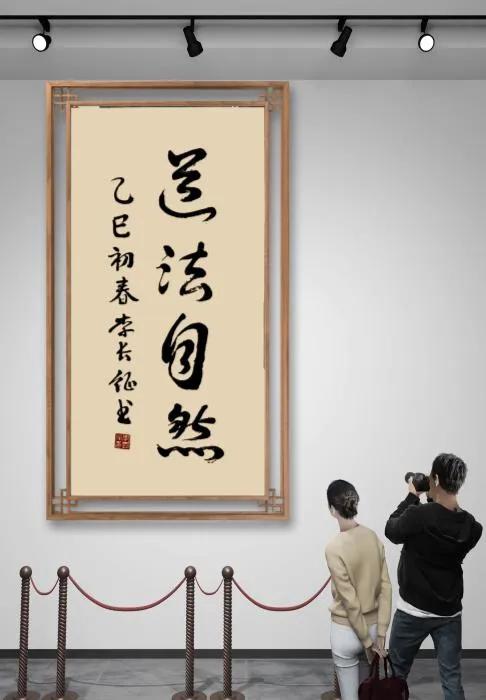 道法自然
乙巳初春李长征书